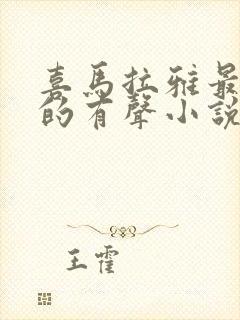 喜馬拉雅最
的有聲小說
王霍